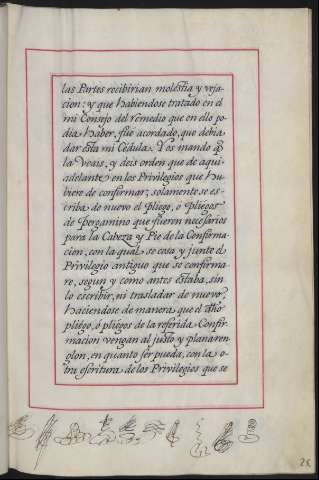 las Partes recibirian molestia y veja-
cion: y que habiendose tratado en el
mi Consejo del remedio que en ello po-
dia haber, fué acordado, que debia
dar esta mi Cédula. Y os mando q̃
la Veais, y deis orden que de aqui-
adelante en los Privilegios que hu-
biere de confirmar; solamente se es-
criba de nuevo el pliego, ó pliegos
de pergamino que fueren necesarios
para la Cabeza y Pie de la Confirma-
cion, con la qual se cosa y junte el
Privilegio antiguo que se confirma-
re, segun y como antes estaba, sin
lo escribir, ni trasladar de nuevo,
haciendose de manera que el dho
pliego, ó pliegos de la referida Confir-
macion vengan al justo y plana ren-
glon, en quanto ser pueda, con la o-
tra escritura de los Privilegios que se